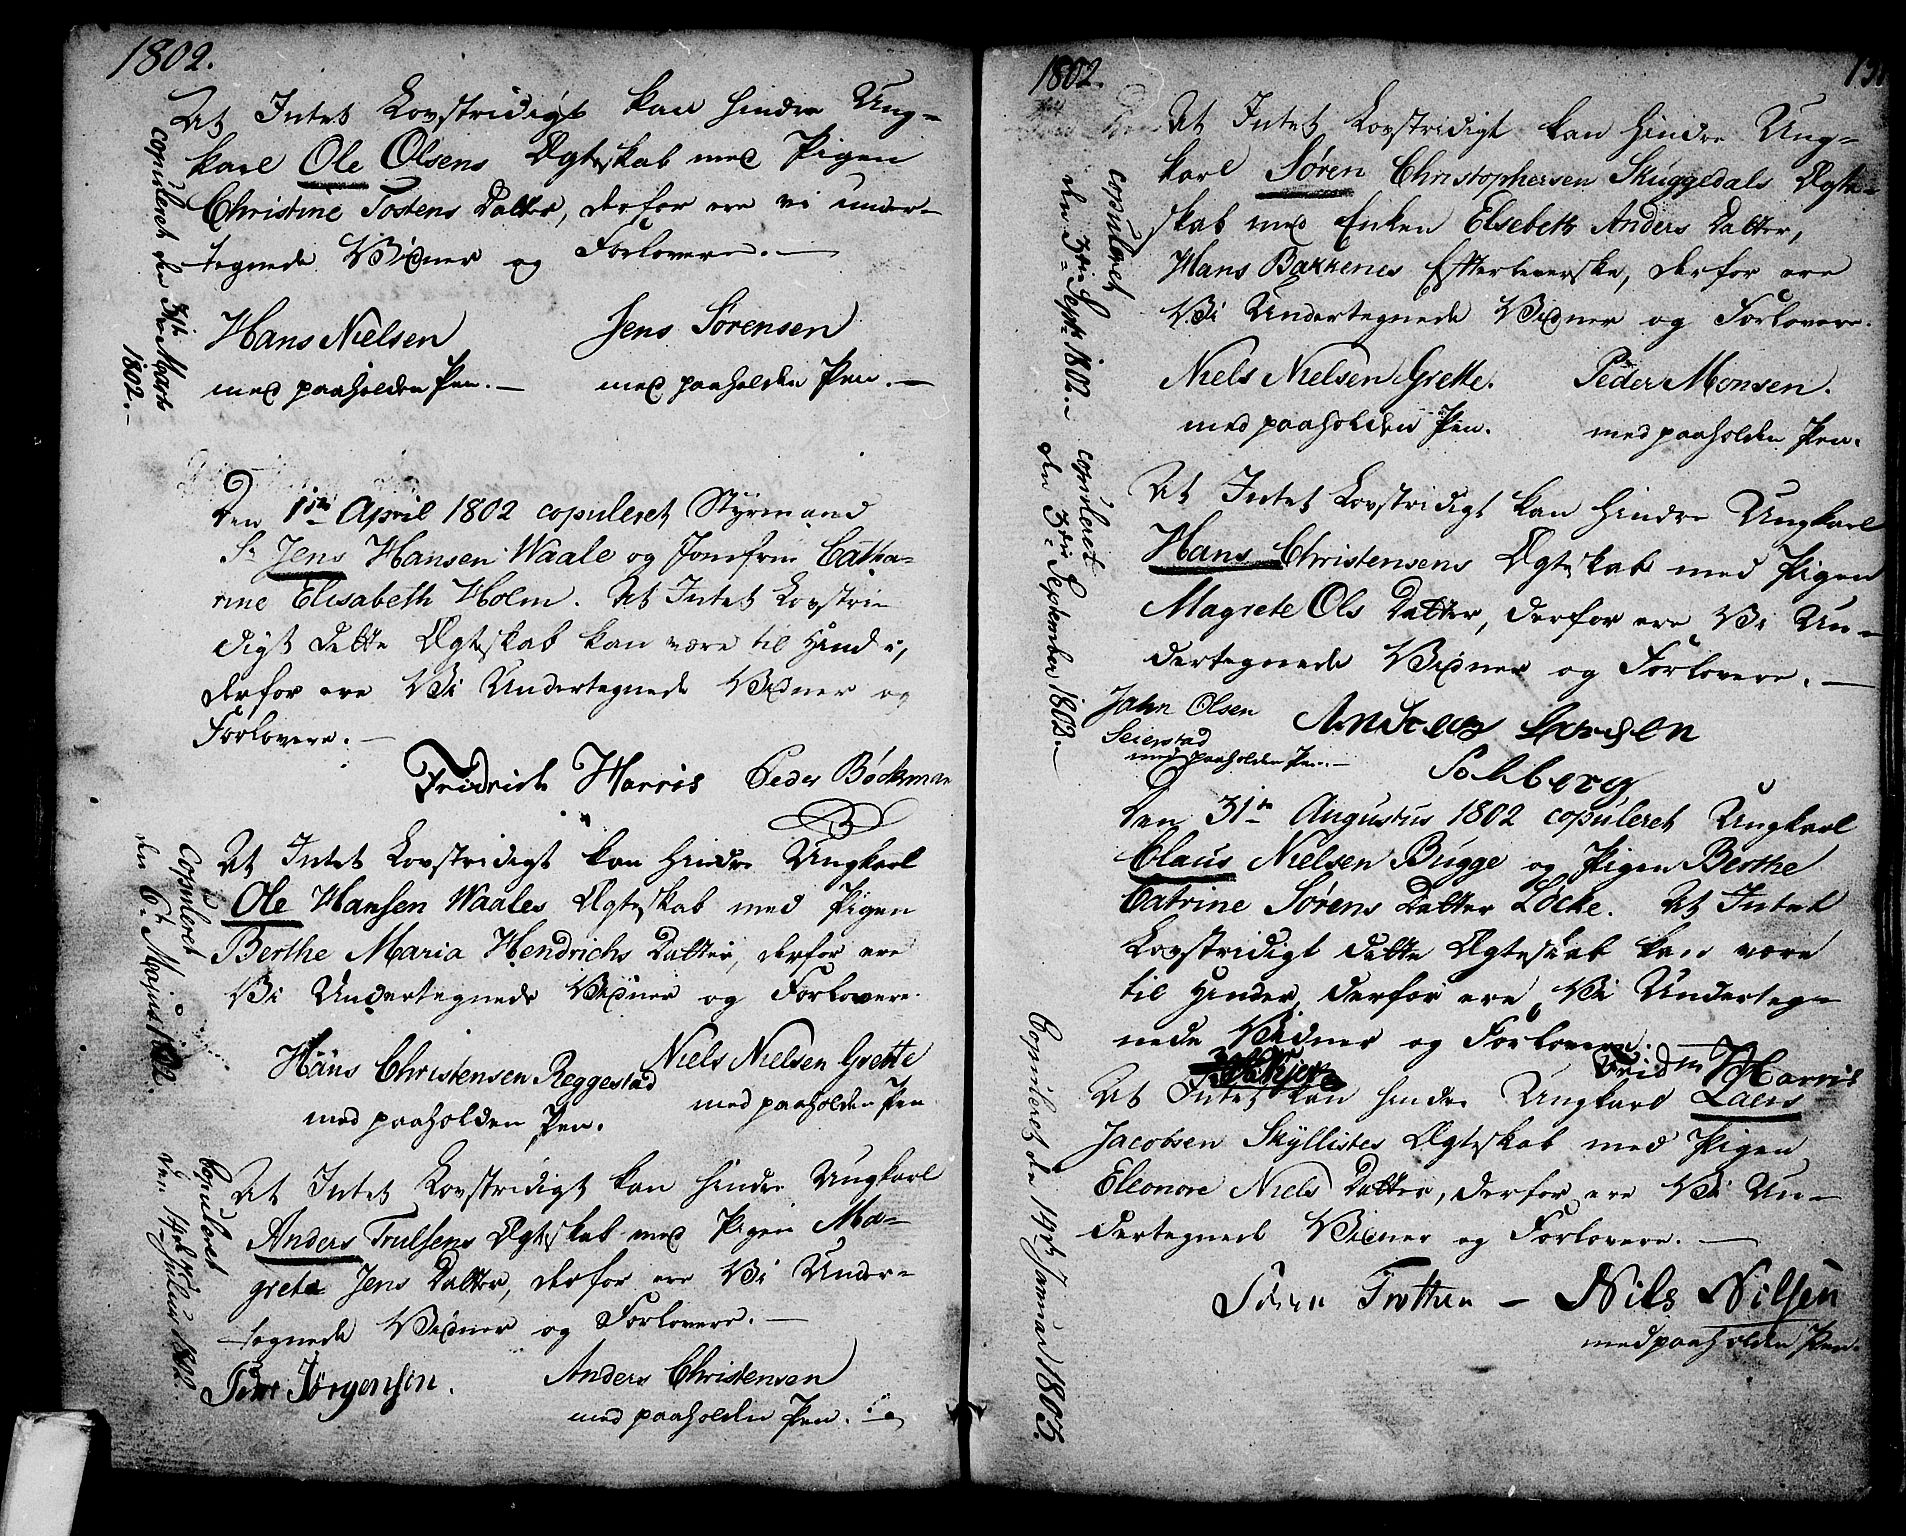 1802.
At Intet Lovstridigt kan hindre Ung-
karl Ole Olsens Ægteskab med Pigen
Christine Tostens Datter, derfor ere vi under-
tegnede Vidner og Forlovere. —
copuleret den 31te Marti
1802. -
Hans Nielsen
med paaholden Pen. —
Jens Sörensen
med paaholden Pen. —
Den 1ste April 1802 copuleret Styrmand
Sr Jens Hansen Waale og Jomfru Catha-
rine Elisabeth Holm. At Intet Lovstri-
digt dette Ægteskab kan være til Hinder,
derfor ere Vi Undertegnede Vidner og
Forlovere. —
Fridrich Harris Peder Böckman
At Intet Lovstridigt kan hindre Ungkarl
Ole Hansen Waales Ægteskab med Pigen
Berthe Maria Hendrichs Datter, derfor ere
Vi Undertegnede Vidner og Forlovere.
Copuleret
den 6te Majus 1802.
Hans Christensen Reggestad
med paaholden Pen.
Niels Nielsen Grette
med paaholden Pen
At Intet Lovstridigt kan hindre Ungkarl
Anders Trulsens Ægteskab med Pigen Ma-
grete Jens Datter, derfor ere Vi Under-
tegnede Vidner og Forlovere. —
Copuleret
den 14de Julius 1802.
Jörgensen.
Anders Christensen
med paaholden Pen.
1802.
At Intet Lovstridigt kan hindre Ung-
karl Sören Christophersen Skuggedals Ægte-
skab med Enken Elsebeth Anders Datter,
Hans Bakkenes Efterleverske, derfor ere
Vi Undertegnede Vidner og Forlovere.
copuleret
den 3die Septr 1802. -
Niels Nielsen Grette.
med paaholden Pen.
Peder Monsen.
med paaholden Pen.
At Intet Lovstridigt kan hindre Ungkarl
Hans Christensens Ægteskab med Pigen
Magrete Ols Datter, derfor ere Vi Un-
dertegnede Vidner og Forlovere. —
copuleret
den 3die September 1802. -
Jahn Olsen
Seierstad
med paaholden Pen. -
Andreas Larsen
Solberg
Den 31te Augustus 1802 copuleret Ungkarl
Claus Nielsen Bugge og Pigen Berthe
Catrine Sörens Datter Löcke. At Intet
Lovstridigt dette Ægteskab kan være
til Hinder, derfor ere Vi Underteg-
nede Vidner og Forlovere. —
Fridrich Harris
At Intet kan hindre Ungkarl Laers
Jacobsen Skyllistes Ægteskab med Pigen
Eleonore Niels Datter, derfor ere Vi Un-
dertegnede Vidner og Forlovere. —
Copuleret den 14de Januar 1803.
Nils Nilsen
med paaholden Pen.